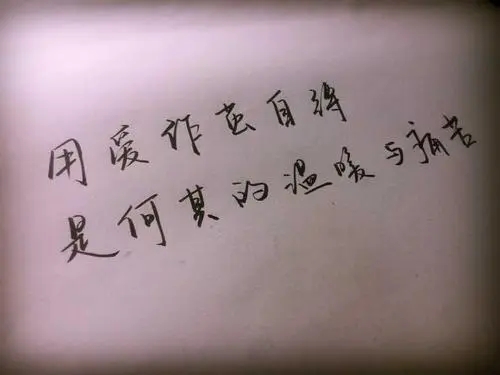 用爱诈茧自缚
是何其的温暖与痛苦